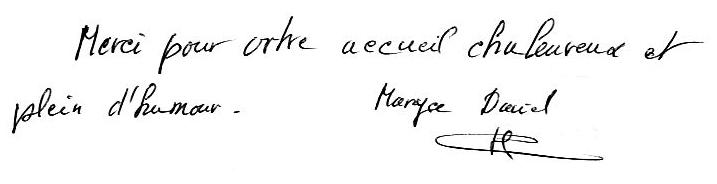 Merci pour votre accueil chaleureux et
plein d'humour. Maryse Daniel